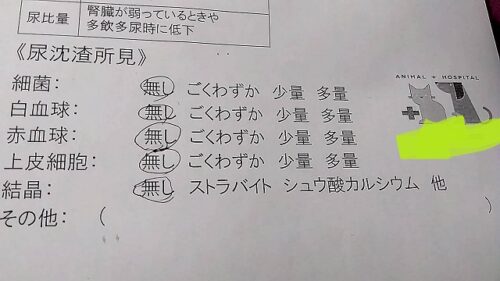 尿比重 腎臓が弱っているときや
多飲多尿時に低下
《尿沈渣所見》
細菌: 無し ごくわずか 少量 多量
白血球: 無し ごくわずか 少量 多量
赤血球: 無し ごくわずか 少量 多量
上皮細胞: 無し ごくわずか 少量 多量
結晶: 無し ストラバイト シュウ酸カルシウム 他
その他: ( )
ANIMAL + HOSPITAL